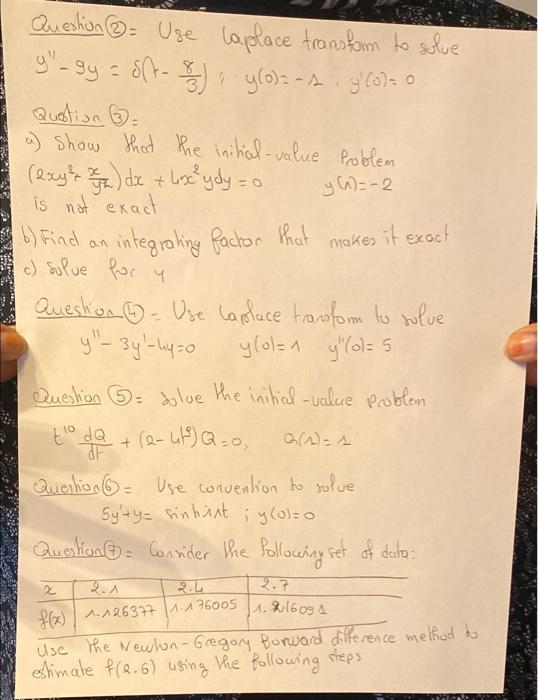 Question ② = Use laplace transform to solve
y'' - 9y = δ(t - 8/3) ; y(0) = -1 , y'(0) = 0
Question ③ =
a) Show that the initial-value Problem
(2xy² + x/y²) dx + 4x²y dy = 0 y(1) = -2
is not exact
b) Find an integrating factor that makes it exact
c) Solve for y
Question ④ = Use laplace transform to solve
y'' - 3y' - 4y = 0 y(0) = 1 y''(0) = 5
Question ⑤ = solve the initial-value problem
t¹⁰ dQ/dt + (2 - 4t⁹) Q = 0, Q(1) = 1
Question ⑥ = Use convention to solve
5y' + y = sinh 1t ; y(0) = 0
Question ⑦ = Consider the following set of data:
x 2.1 2.4 2.7
f(x) 1.126377 1.176005 1.216091
Use the Newton-Gregory Forward difference method to
estimate f(2.6) using the following steps